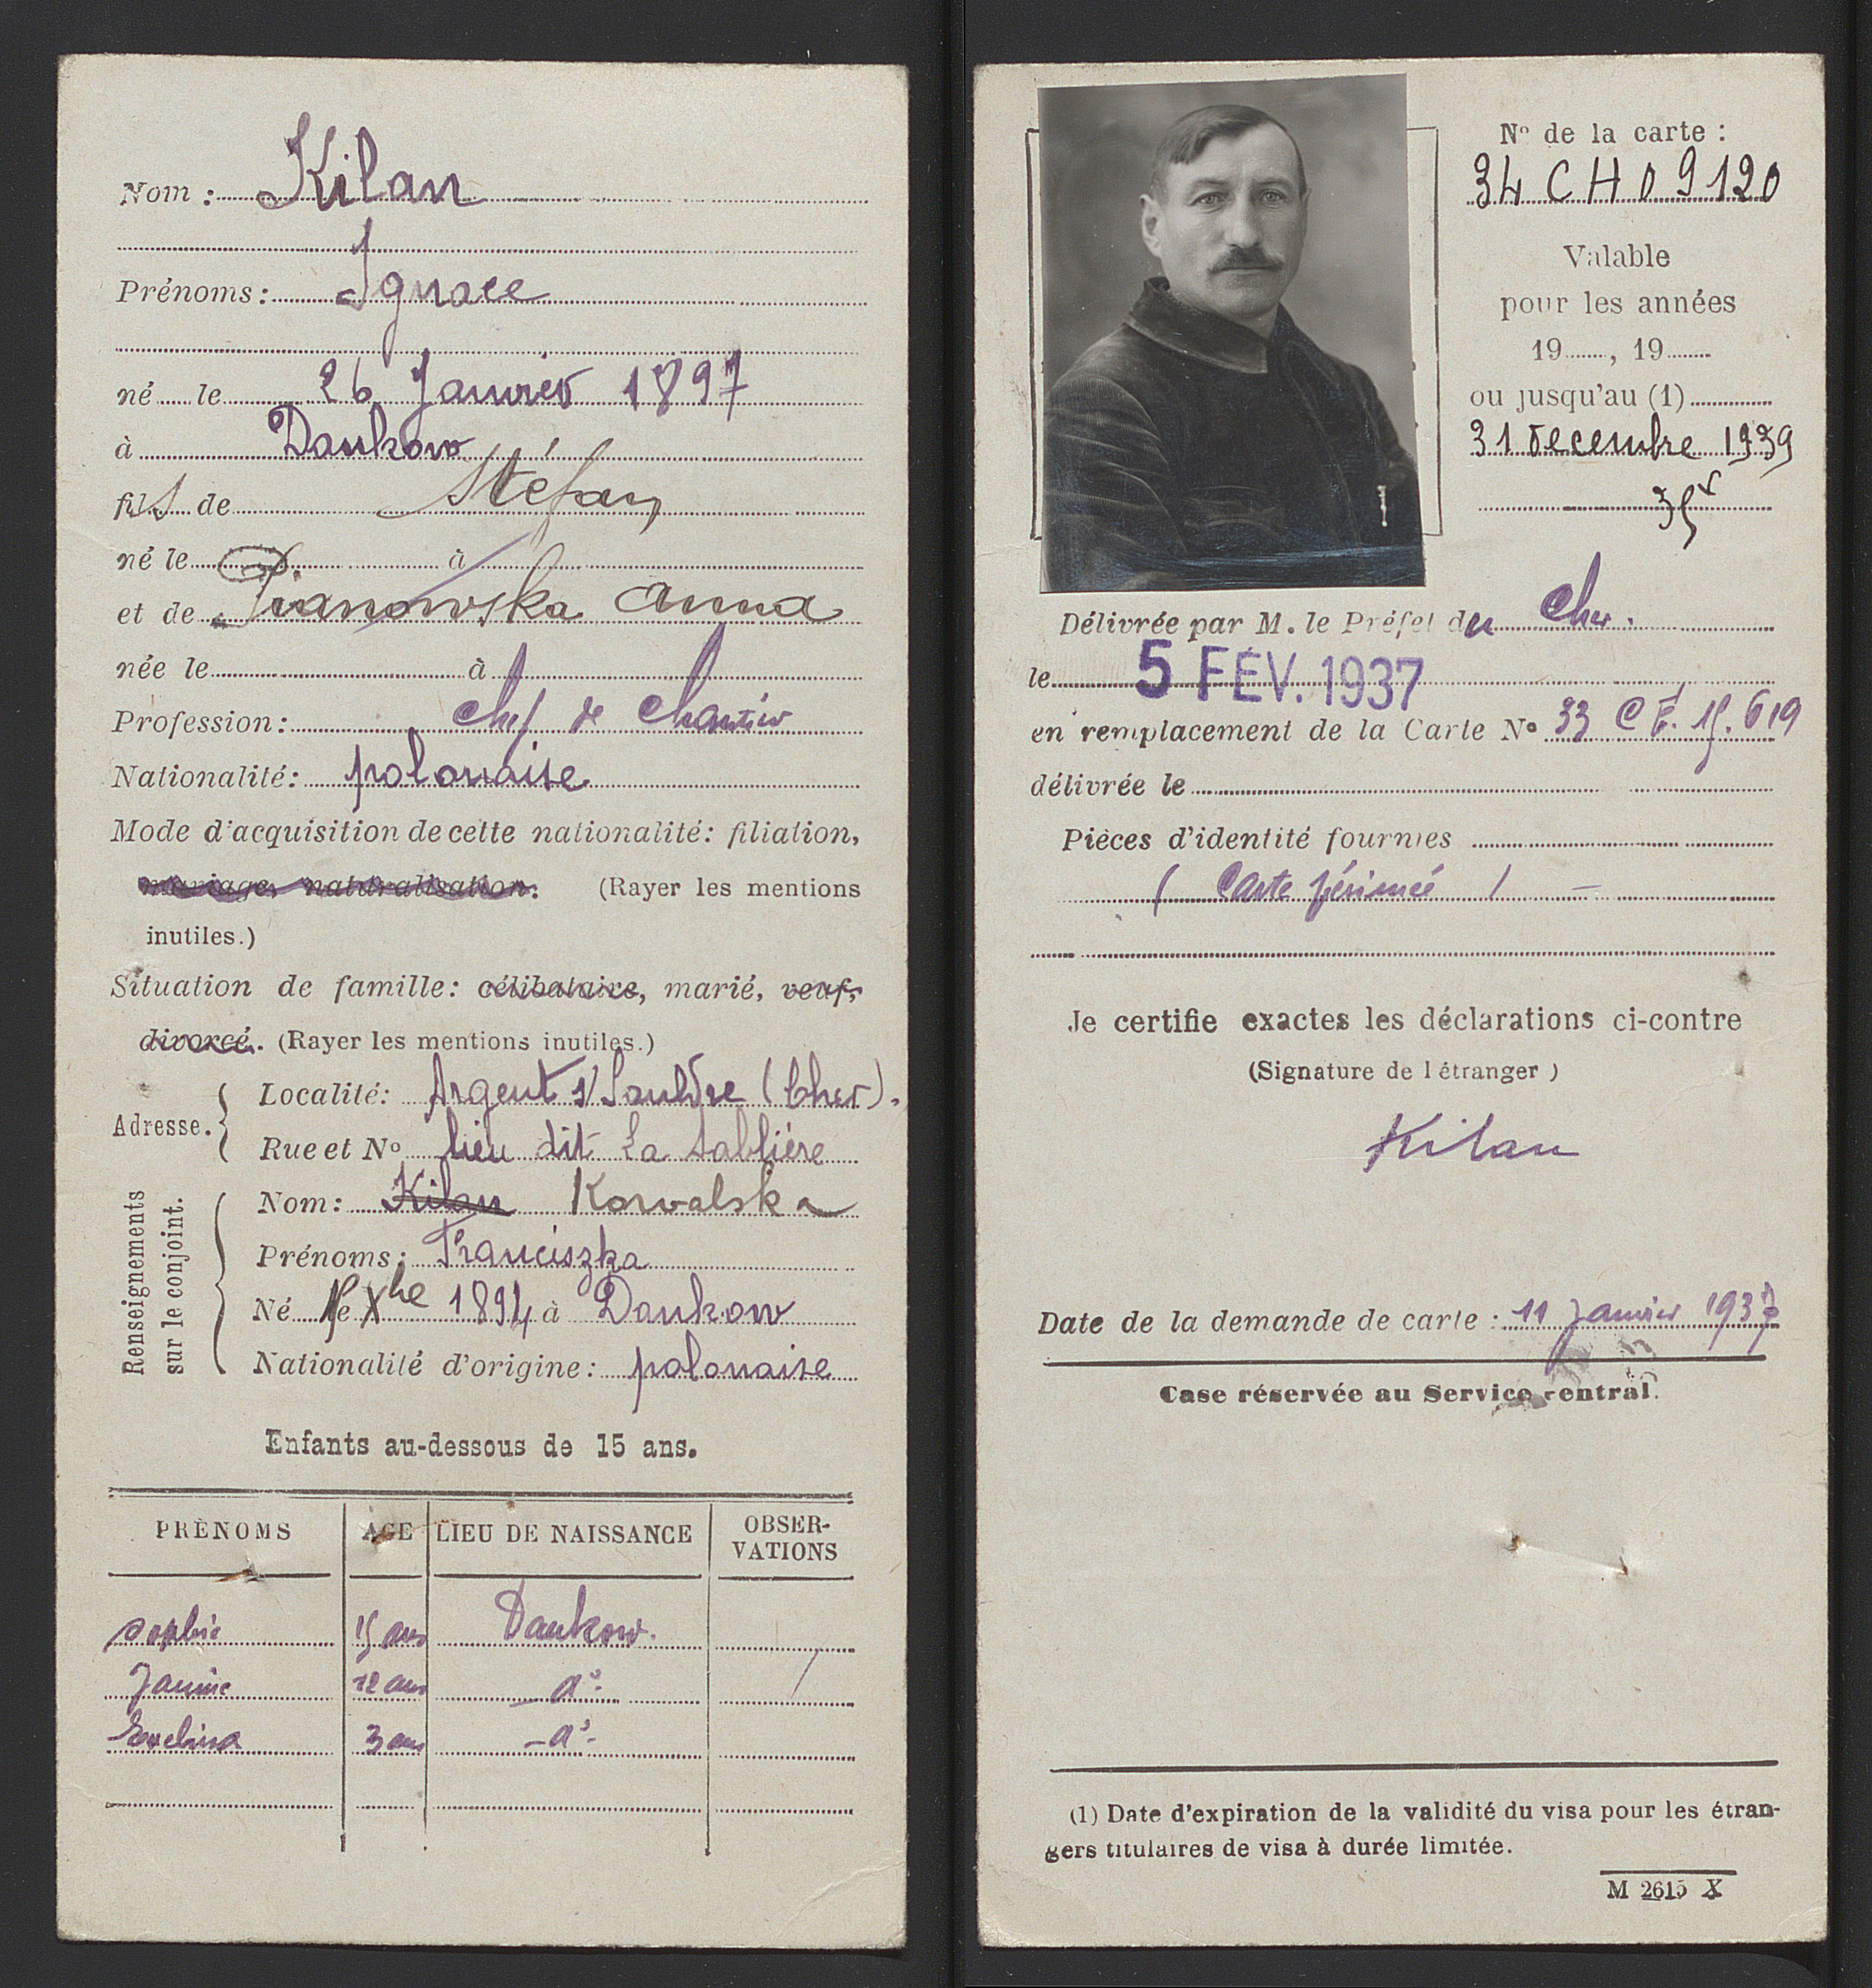 Nom : Kilan
Prénoms : Ignace
né le 26 Janvier 1897
à Dankow
fils de Stéfan
né le à
et de Iwanowska Anna
née le à
Profession : Chef de Chantier
Nationalité : polonaise
Mode d'acquisition de cette nationalité : filiation,
mariage, naturalisation. (Rayer les mentions
inutiles.)
Situation de famille : célibataire, marié, veuf,
divorcé. (Rayer les mentions inutiles.)
Adresse.
Localité : Argent s/ Sauldre (Cher).
Rue et No lieu dit La Sablière
Renseignements
sur le conjoint.
Nom : Kilan Kowalska
Prénoms : Franciszka
Né le Xbre 1894 à Dankow
Nationalité d'origine : polonaise
Enfants au-dessous de 15 ans.
PRÉNOMS AGE LIEU DE NAISSANCE OBSER-
VATIONS
Sophie 15 ans Dankow.
Janine 12 ans — do —
Ewelina 3 ans — do —
No de la carte :
34 CH 09120
Valable
pour les années
19 , 19
ou jusqu'au (1)
31 Decembre 1939
Délivrée par M. le Préfet du Cher.
le 5 FÉV. 1937
en remplacement de la Carte No 33 CE. 15.619
délivrée le
Pièces d'identité fournies
( Carte périmée ) —
Je certifie exactes les déclarations ci-contre
(Signature de l'étranger)
Kilan
Date de la demande de carte : 11 Janvier 1937
Case réservée au Service central.
(1) Date d'expiration de la validité du visa pour les étran-
gers titulaires de visa à durée limitée.
M 2615 X